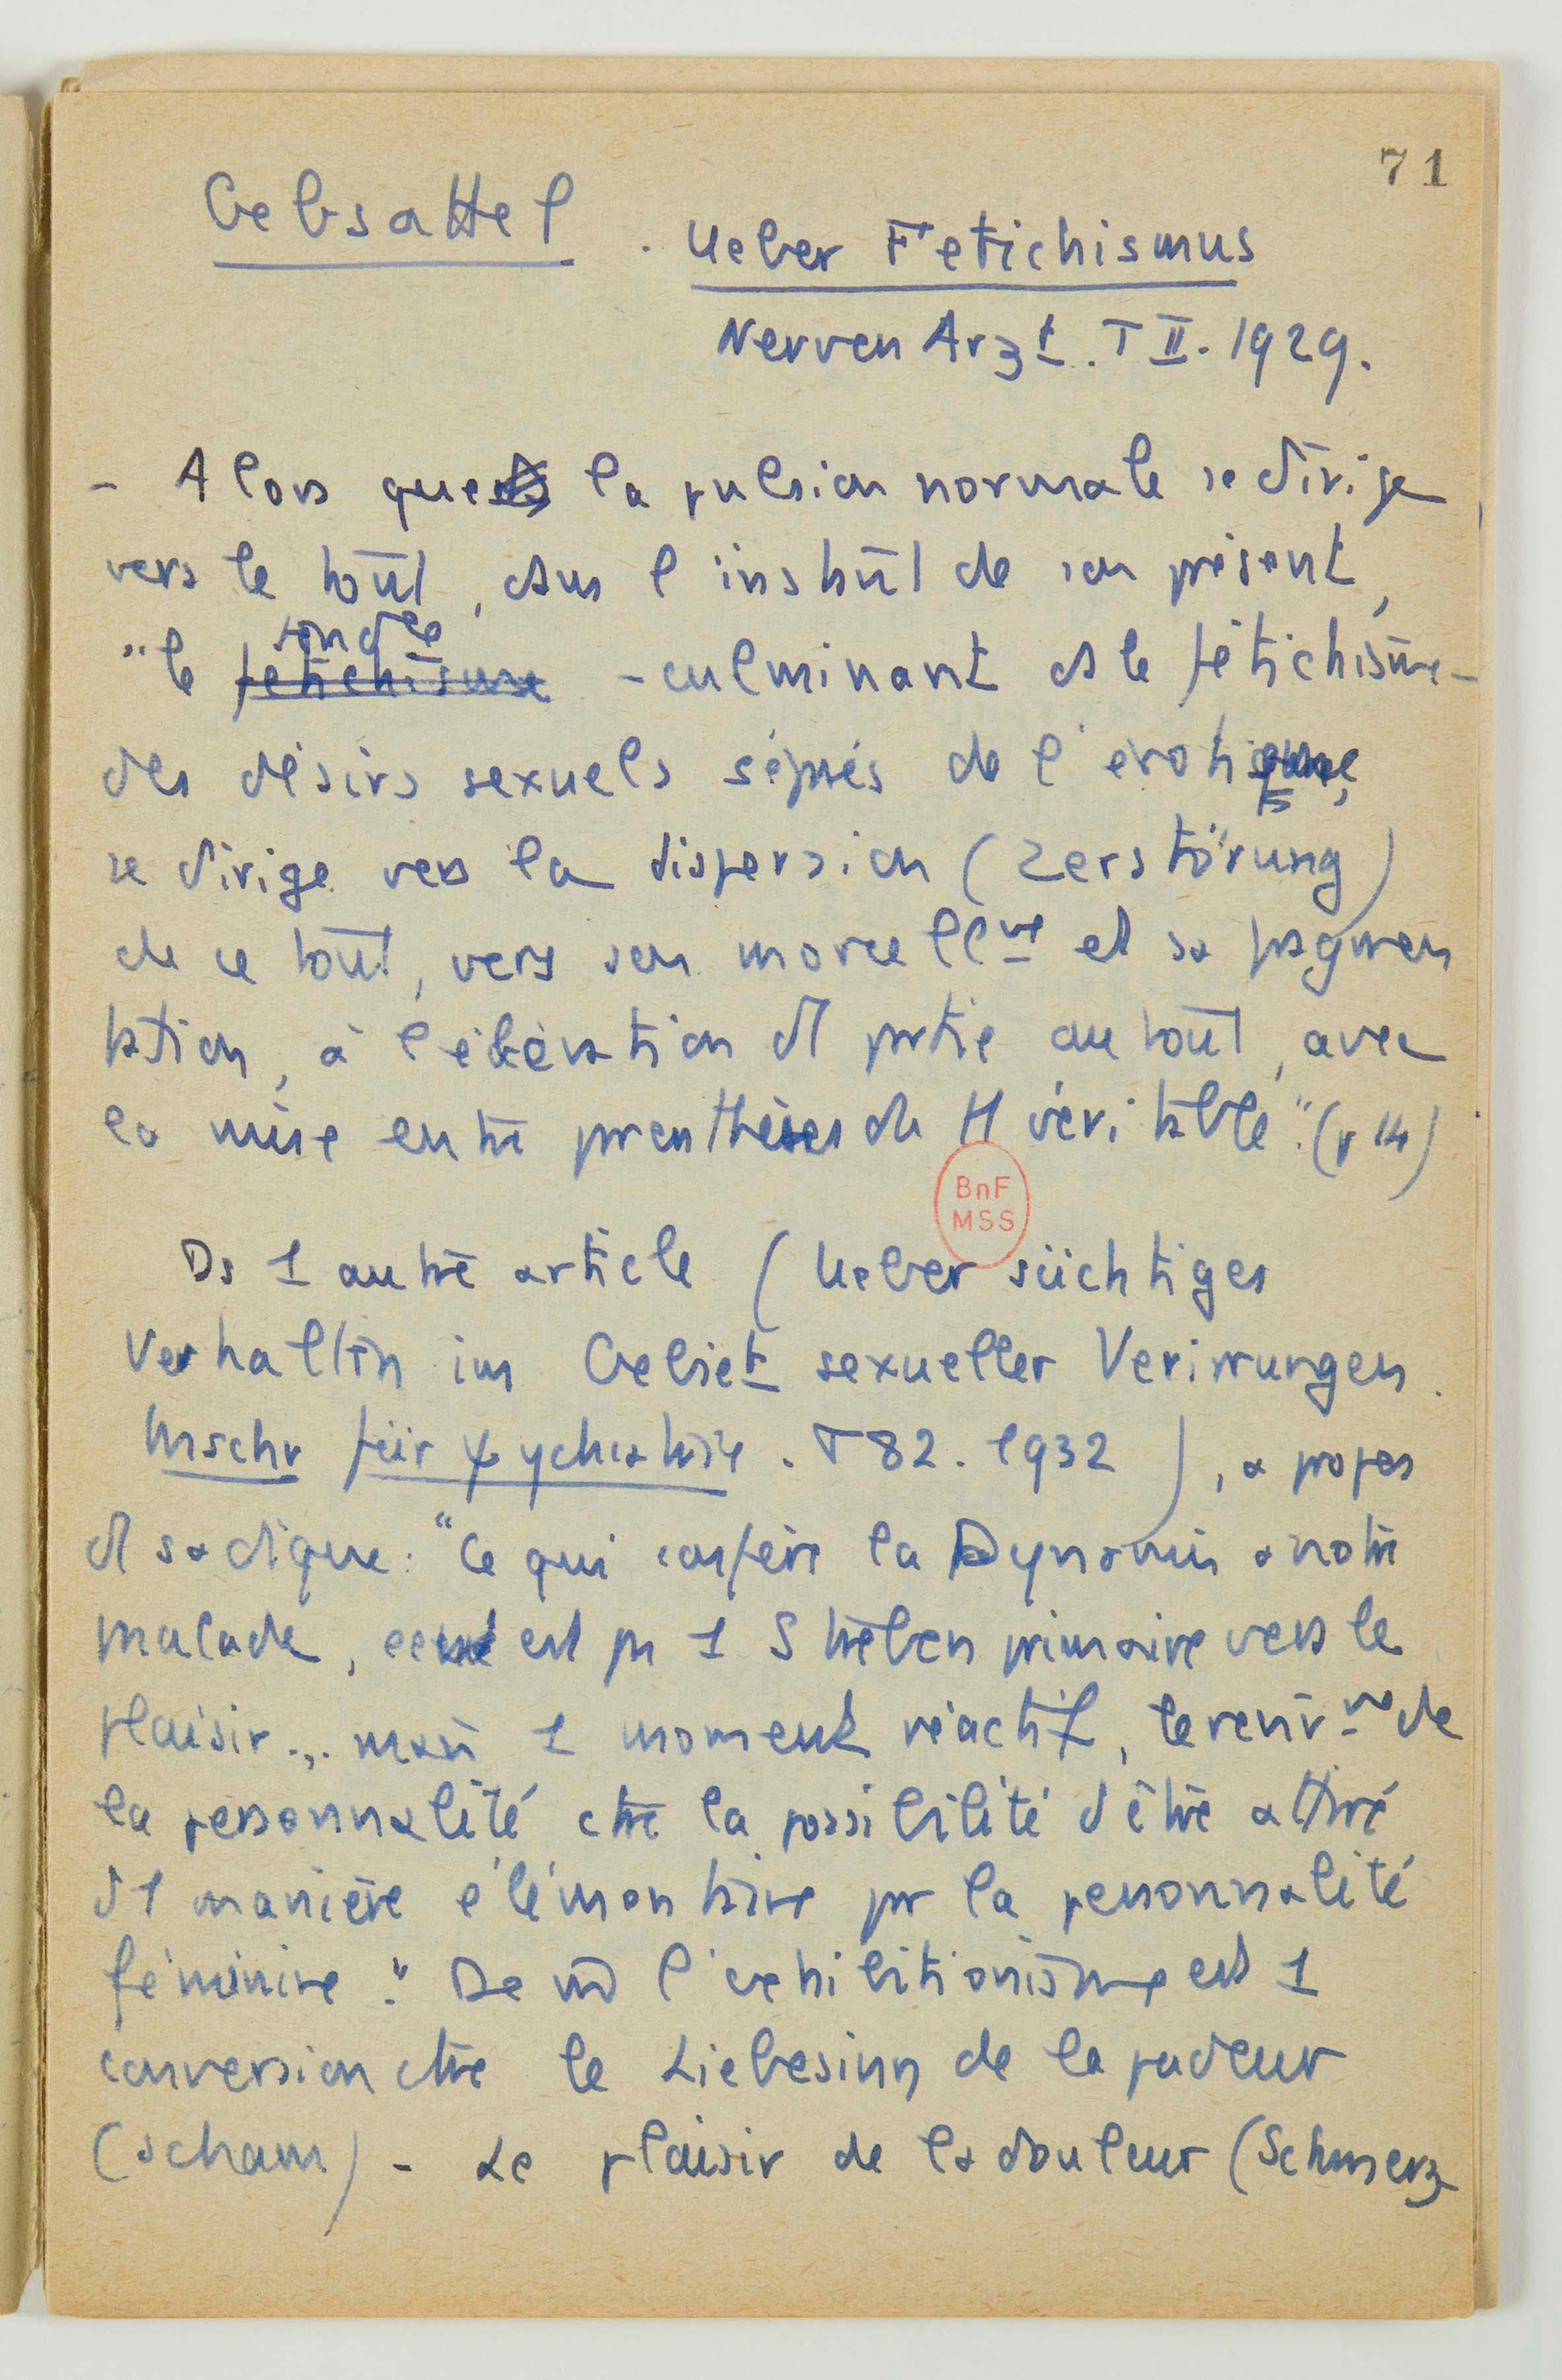 71
Gebsattel . Ueber Fetichismus
Nerven Arzt. T II. 1929.
- Alors que la pulsion normale se dirige
vers le tout, ds l'instut de son présent,
tondce
"le fetichisme - culminant ds le fétichisme -
des désirs sexuels séprés de l'érotique,
se dirige vers la dispersion (Zerstörung)
de ce tout, vers son morcellmt et sa fragmen
tation, à libération d1 prtie du tout, avec
la mise entre prenthèses du H véritable". (p 14)
BnF
MSS
Ds 1 autre article (Ueber süchtiges
Verhalten im Gebiet sexueller Verirrungen.
Mschr für ψychiatrie. T 82. 1932), a propos
d1 sadique: "Ce qui confère la Dynamis a notre
malade, est ps 1 Streben primaire vers le
plaisir... mais 1 moment réactif, le renvrmt de
la personnalité ctre la possibilité d'être attiré
d1 manière élémentaire pr la personnalité
féminine". De m̄ l'exhibitionisme est 1
conversion ctre le Liebesinn de la pudeur
(Scham) - Le plaisir de la douleur (Schmerz